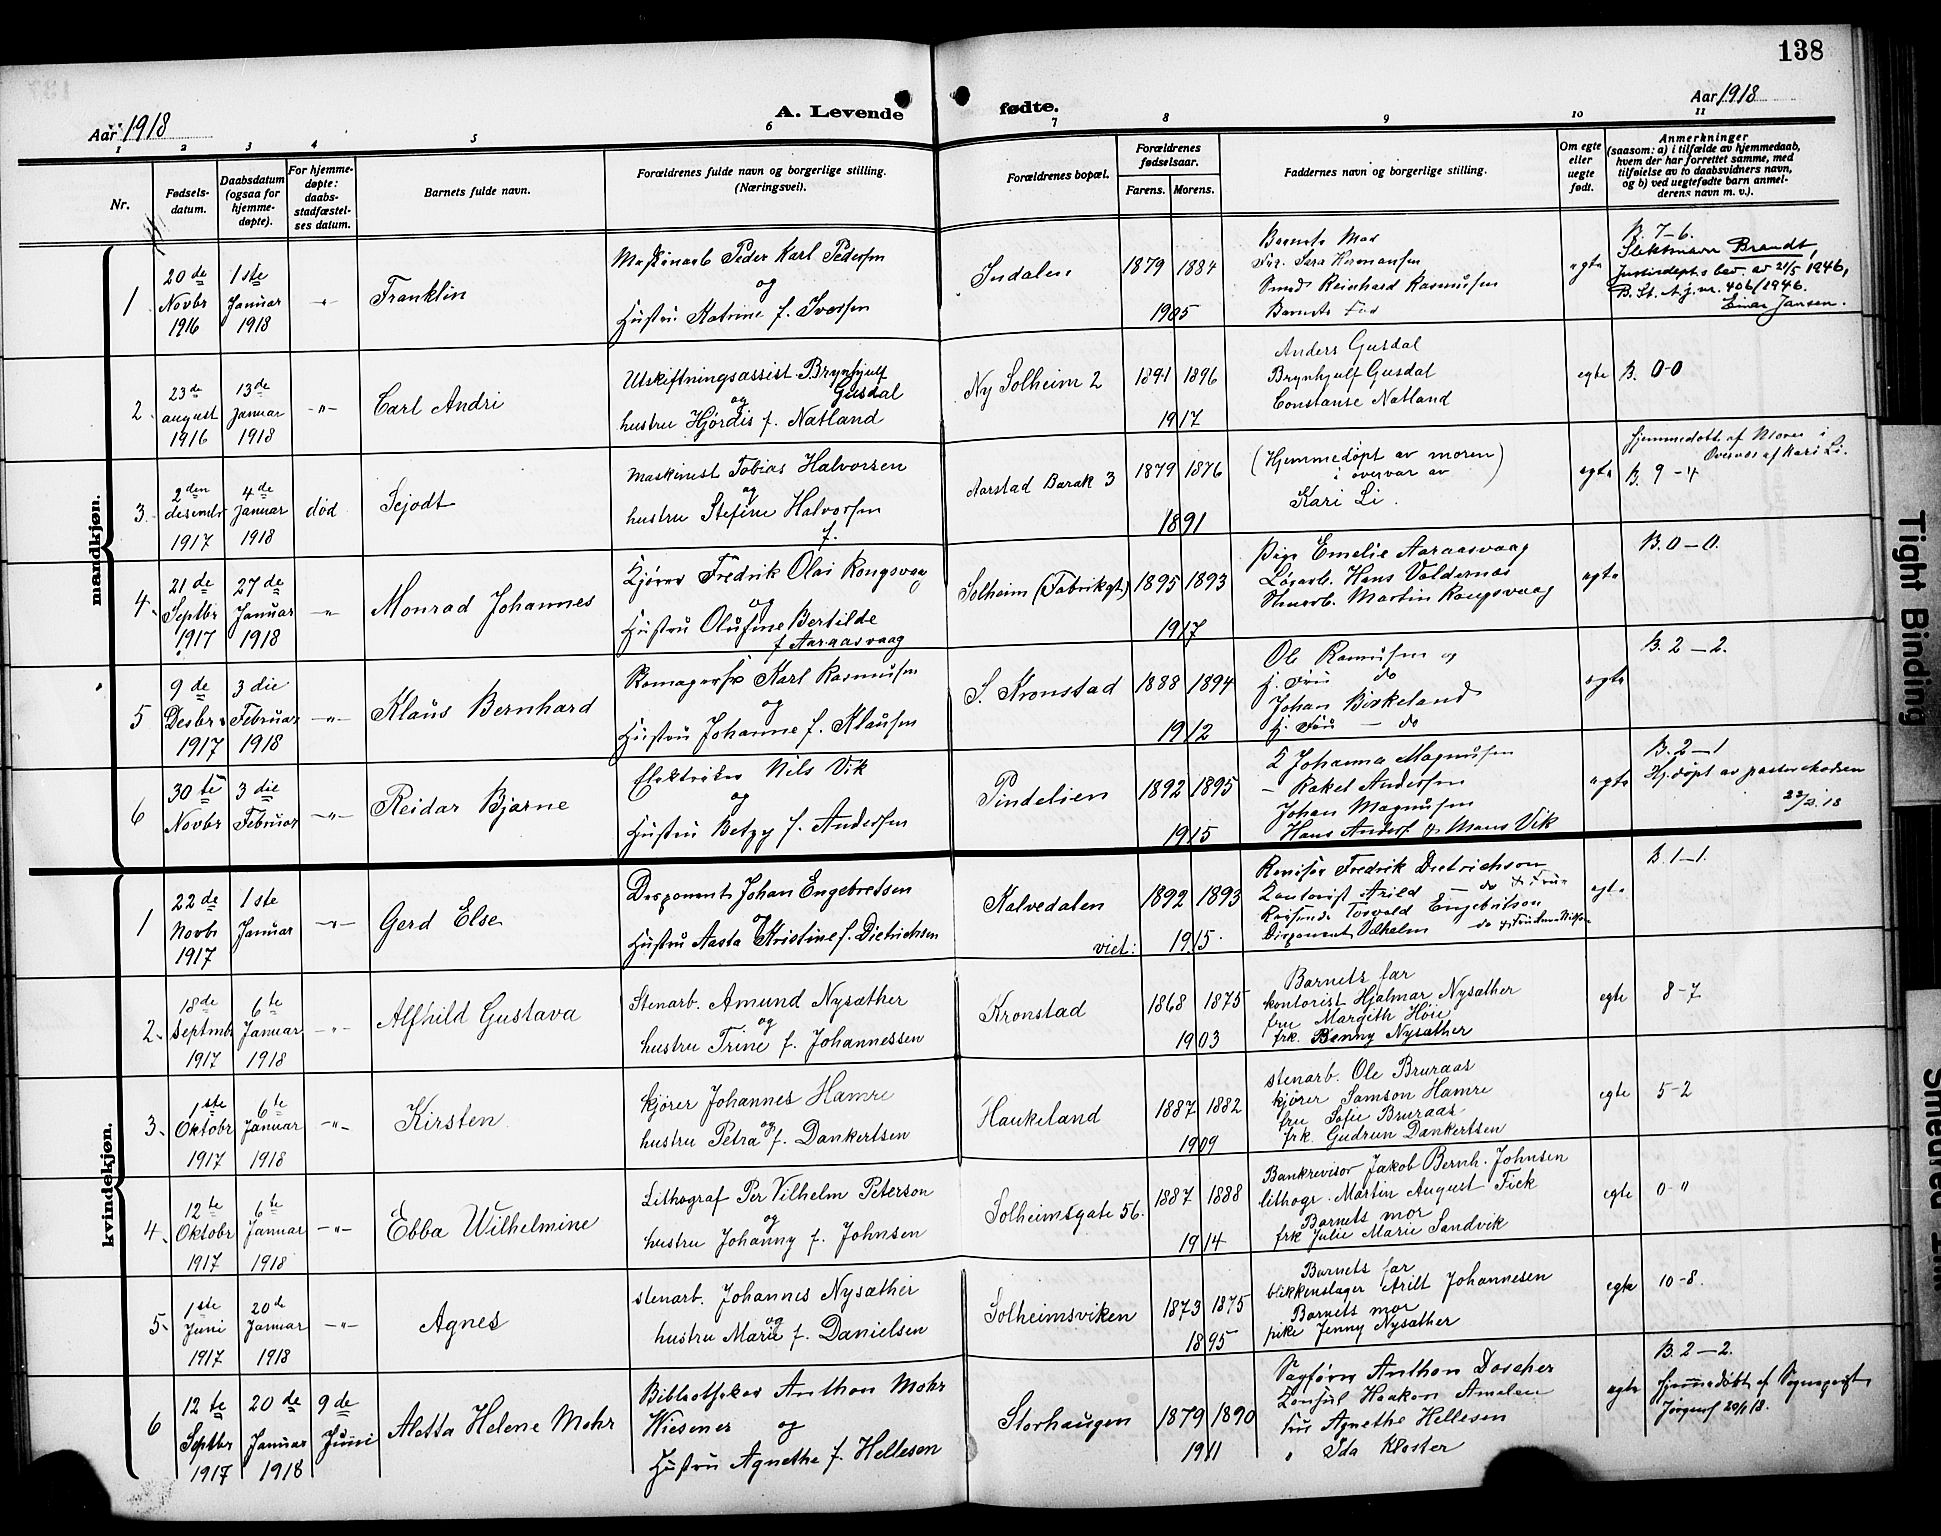 138
Aar 1918
A. Levende
fødte.
Aar 1918
1 2 3 4 5 6 7 8 9 10 11
Nr.
Fødsels-
datum.
Daabsdatum
(ogsaa for
hjemme-
døpte).
For hjemme-
døpte:
daabs-
stadfæstel-
ses datum.
Barnets fulde navn.
Forældrenes fulde navn og borgerlige stilling.
(Næringsvei).
Forældrenes bopæl.
Forældrenes
fødselsaar.
Farens. Morens.
Faddernes navn og borgerlige stilling.
Om egte
eller
uegte
født.
Anmerkninger
(saasom: a) i tilfælde av hjemmedaab,
hvem der har forrettet samme, med
tilføielse av to daabsvidners navn,
og b) ved uegtefødte barn anmel-
derens navn m. v.).
mandkjøn.
1
20de
Novbr
1916
1ste
Januar
1918
-"-
Franklin
Maskinarb Peder Karl Pedersen
og
Hustru Katrine f. Iversen
Indalen
1879 1884
1905
Barnets Mor
Fru Sara Hermansen
Smed Reinhard Rasmussen
Barnets Far
egte
B. 7-6.
Slektsnavn Brandt,
Justisdept.s bev. av 21/5 1946,
B. St. A. j. nr. 406/1946.
Einar Jansen.
2
23de
august
1916
13de
Januar
1918
-"-
Carl Andri
Utskiftningsassist. Brynhjulf
Gusdal
og
hustru Hjørdis f. Natland
Ny Solheim 2
1891 1896
1917
Anders Gusdal
Brynhjulf Gusdal
Constanse Natland
egte
B. 0-0
3
2den
desembr
1917
4de
Januar
1918
død
Sejodt
Maskinist Tobias Halvorsen
og
hustru Stefine Halvorsen
f.
Aarstad Barak 3
1879 1876
1891
(Hjemmedøpt av moren
i overvær av)
Kari Li.
egte
Hjemmedøbt af Moren i
Overvær af Kari Li.
B. 9-4
4
21de
Septbr
1917
27de
Januar
1918
"
Monrad Johannes
Kjører Fredrik Olai Rongsvaag
og
Hustru Olufine Bertilde
f. Aaraasvaag
Solheim (Fabrikgt)
1895 1893
1917
Pige Emelie Aaraasvaag
Løsarb. Hans Valdernes
Martin Rongsvaag
egte
B. 0-0.
5
9de
Desbr
1917
3die
Februar
1918
-"-
Klaus Bernhard
Karl Rasmussen
og
Hustru Johanne f. Klausen
S. Kronstad
1888 1894
1912
Ole Rasmussen og
h. Fru do
Johan Birkeland
h. Fru - do
egte
B. 2-2.
6
30te
Novbr
3die
Februar
-"-
Reidar Bjarne
Elektriker Nils Vik
og
Hustru Betzy f. Andersen
Vindelien
1892 1895
1915
Johanna Magnussen
- Rakel Andersen
Johan Magnussen
Hans Anders og Mons Vik
egte
B. 2-1
Hj. døpt av pastor
22/2.18
kvindekjøn.
1
22de
Novbr
1917
1ste
Januar
-"-
Gerd Else
Disponent Johan Engebretsen
og
Hustru Aasta Kristine f. Dietrichsen
Kalvedalen
viet:
1892 1893
1915.
Revisor Fredrik Dietrichson
Kontorist Arild - do & Frue
Reisende Torvald Engebretson
Disponent Vilhelm do
egte
B. 1-1.
2
18de
Septmbr
1917
6te
Januar
1918
-"-
Alfhild Gustava
Stenarb. Amund Nysæther
og
hustru Trine f. Johannessen
Kronstad
1868 1875
1903
Barnets far
kontorist Hjalmar Nysæther
fru Margith Høie
frk. Benny Nysæther
egte
8-7
3
1ste
Oktobr
1917
6te
Januar
1918
-"-
Kirsten
kjører Johannes Hamre
og
hustru Petra f. Dankertsen
Haukeland
1887 1882
1909
stenarb. Ole Bruraas
kjører Samson Hamre
fru Sofie Bruraas
frk. Gudrun Dankertsen
egte
5-2
4
12te
Oktobr
1917
6te
Januar
1918
-"-
Ebba Wilhelmine
Lithograf Per Vilhelm Peterson
og
hustru Johanny f. Johnsen
Solheimsgate 56.
1887 1888
1914
Bankrevisor Jakob Bernh. Johnsen
lithogr. Martin August Fick
Barnets mor
frk Julie Marie Sandvik
egte
0-"
5
1ste
Juni
1917
20de
Januar
1918
-"-
Agnes
stenarb. Johannes Nysæther
og
hustru Marie f. Danielsen
Solheimsviken
1873 1875
1895
Barnets far
blikkenslager Arilt Johannesen
Barnets mor
pike Jenny Nysæther
egte
10-8.
6
12te
Septbr
1917
20de
Januar
1918
9de
Juni
Aletta Helene Mohr
Bibliothekar Anthon Mohr
Wiesener og
Hustru Agnethe f. Hellesen
Storhaugen
1879 1890
1911
Sagfører Anthon Doscher
Konsul Haakon Amelen
Fru Agnethe Hellesen
" Ida Kloster
egte
B. 2-2.
Hjemmedøbt af Sogneprest
20/1 18.
Tight Binding